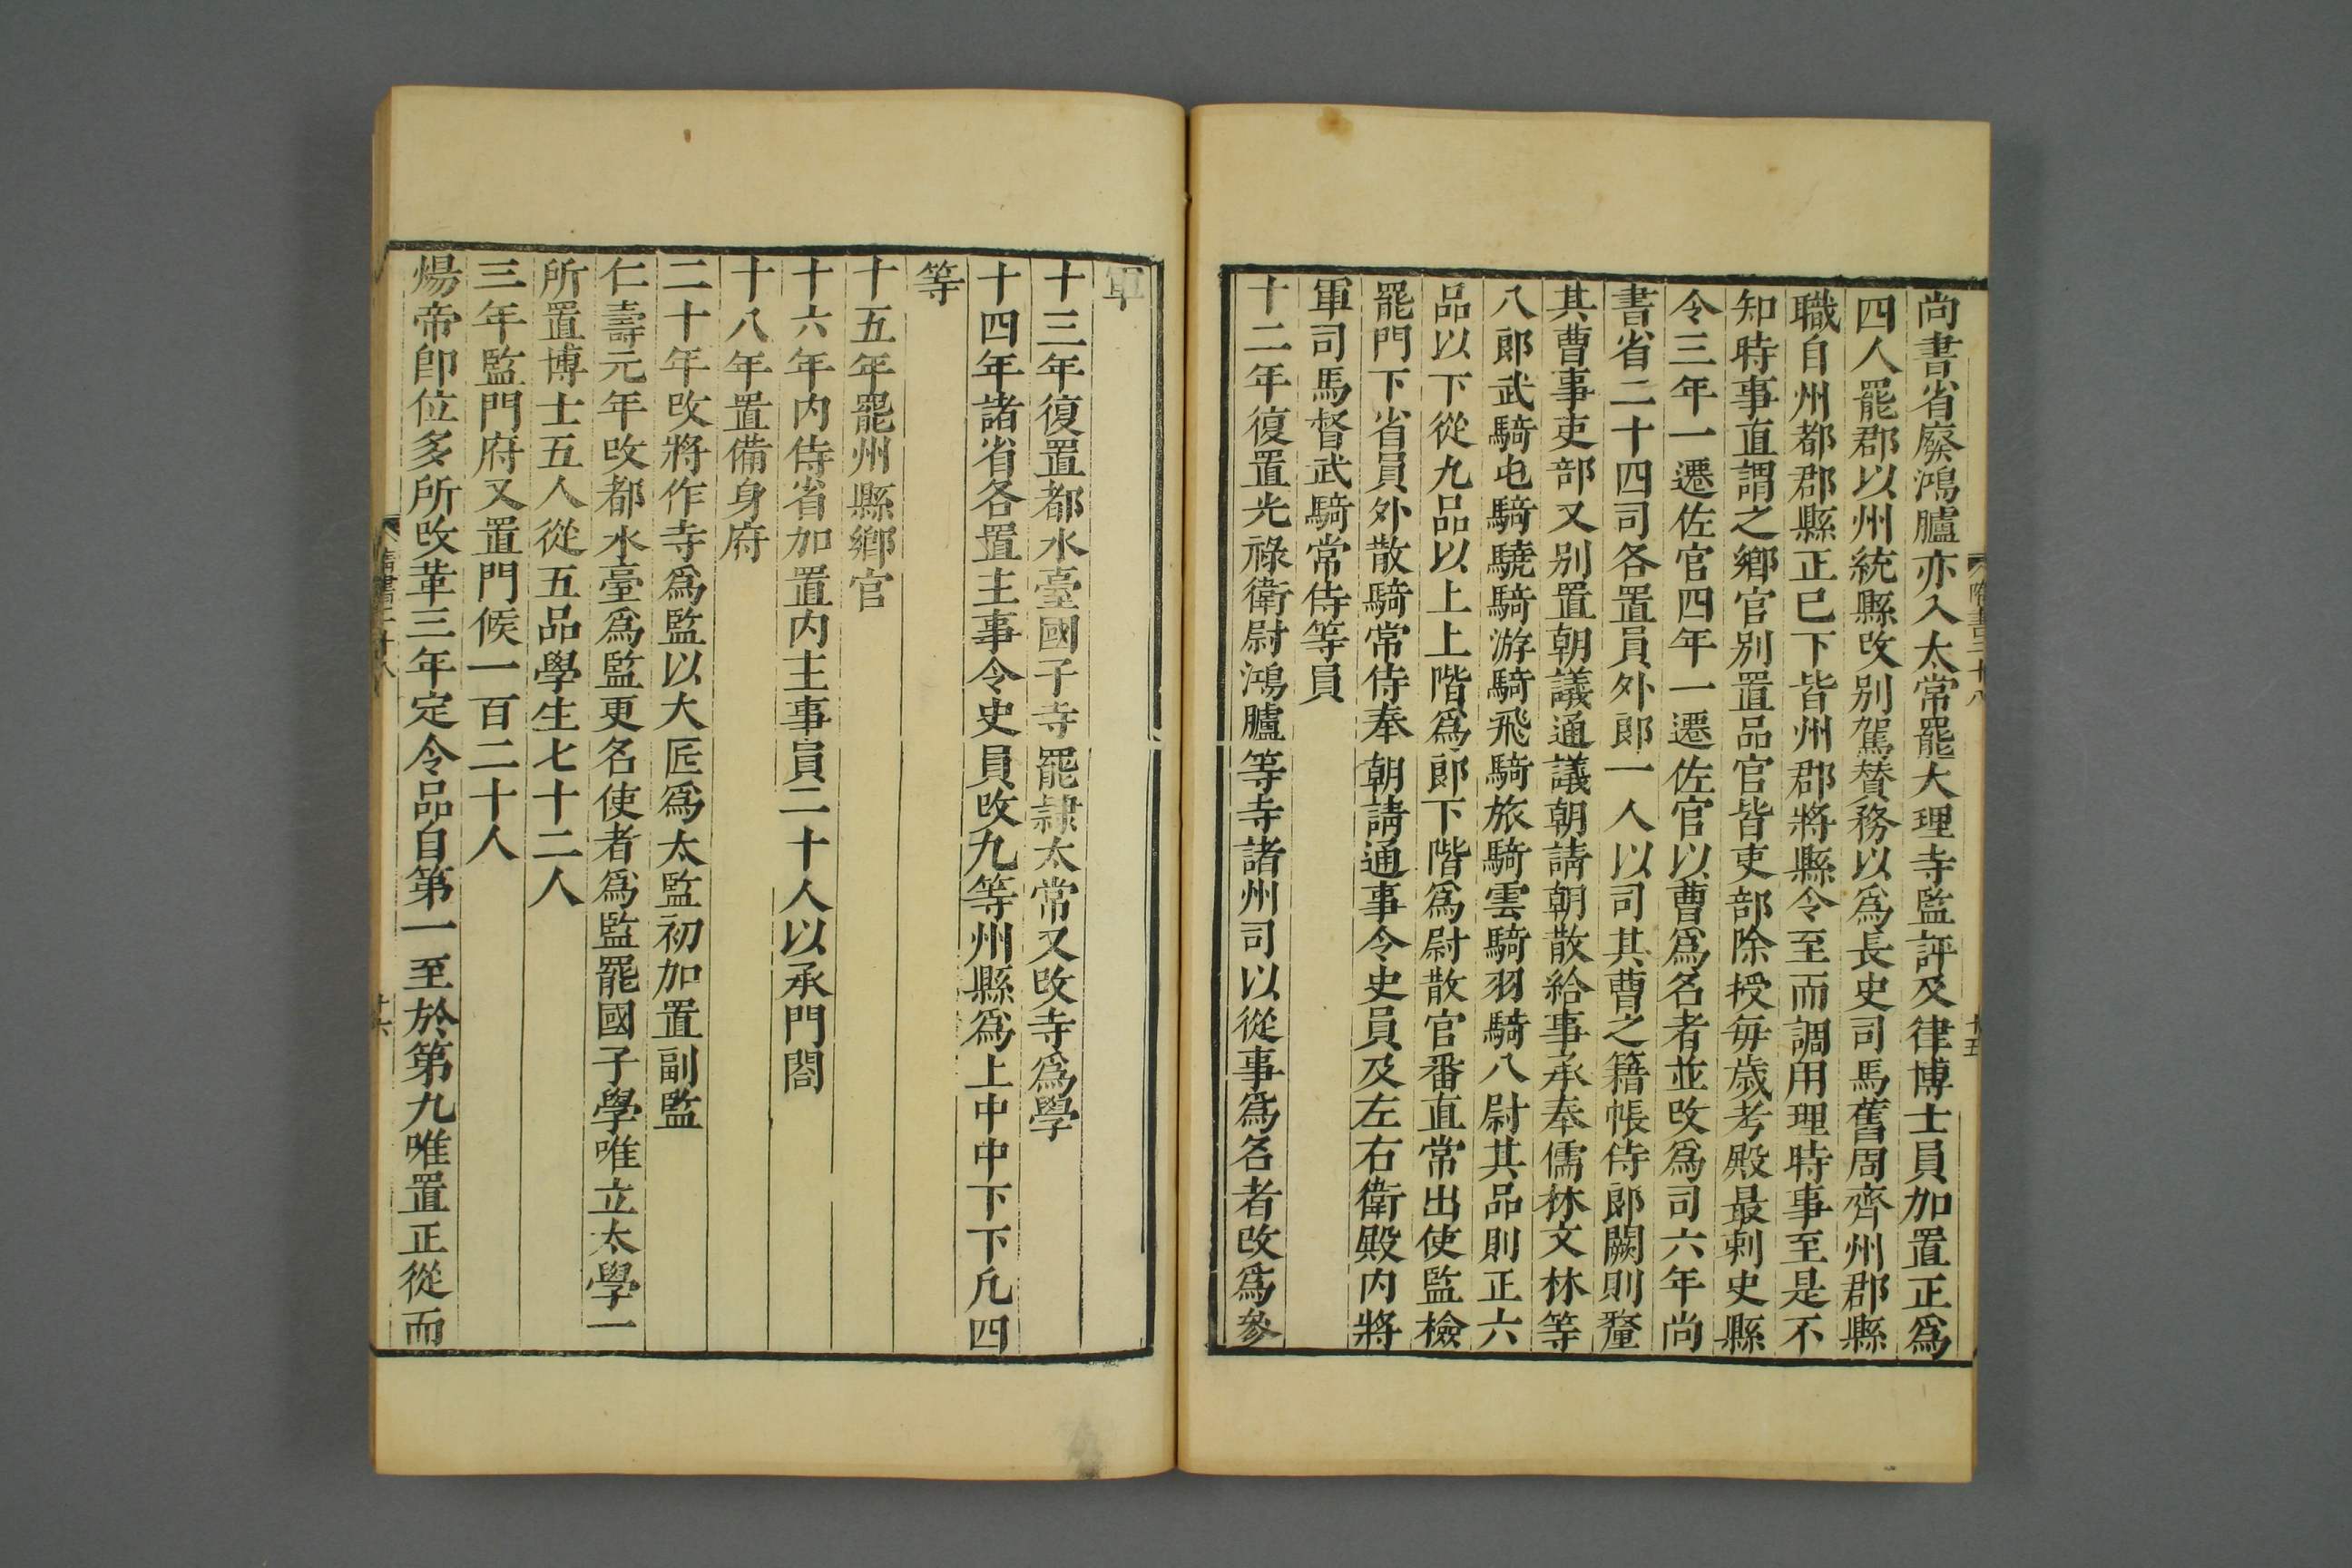 尚書省廢鴻臚亦入太常罷大理寺監評及律博士員加置正爲
四人罷郡以州統縣改别駕賛務以爲長史司馬舊周齊州郡縣
職自州都郡縣正已下皆州郡將縣令至而調用理時事至是不
知時事直謂之鄉官别置品官皆吏部除授每歲考殿最刺史縣
令三年一遷佐官四年一遷佐官以曹爲名者並改爲司六年尚
書省二十四司各置員外郎一人以司其曹之籍帳侍郎闕則釐
其曹事吏部又别置朝議通議朝請朝散給事承奉儒林文林等
八郎武騎屯騎驍騎游騎飛騎旅騎雲騎羽騎八尉其品則正六
品以下從九品以上上階爲郎下階爲尉散官番直常出使監檢
罷門下省員外散騎常侍奉朝請通事令史員及左右衛殿内將
軍司馬督武騎常侍等員
十二年復置光祿衛尉鴻臚等寺諸州司以從事爲名者改爲參
隋書二十八
十五
軍
十三年復置都水臺國子寺罷隷太常又改寺爲學
十四年諸省各置主事令史員改九等州縣爲上中中下下凡四
等
十五年罷州縣鄉官
十六年内侍省加置内主事員二十人以承門閤
十八年置備身府
二十年改將作寺爲監以大匠爲大監初加置副監
仁壽元年改都水臺爲監更名使者爲監罷國子學唯立太學一
所置博士五人從五品學生七十二人
三年監門府又置門候一百二十人
煬帝即位多所改革三年定令品自第一至於第九唯置正從而
隋書二十八
十六